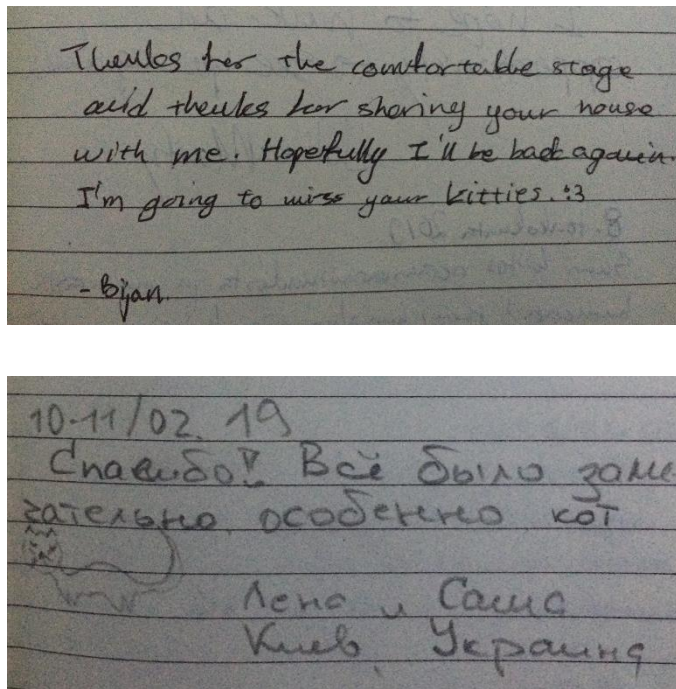 Thanks for the comfortable stage
and thanks for sharing your house
with me. Hopefully I'll be back again.
I'm going to miss your kitties. :3
- Bijan.
10-11/02. 19
Спасибо! Всё было заме
чательно, особенно кот
Лена и Саша
Киев, Украина